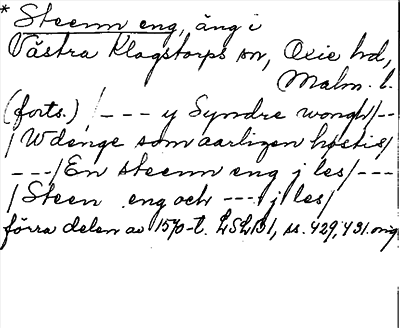 * Steenn eng, äng i
Västra Klagstorps sn, Oxie hd,
Malm. l.
(forts.) / --- y Syndre wongh/--
/Wdenge som aarligen høstis/
---/En steenn eng j les/---
/Steen eng och --- j les/
förra delen av 1570-t. LSLB1, ss. 429, 431. orig